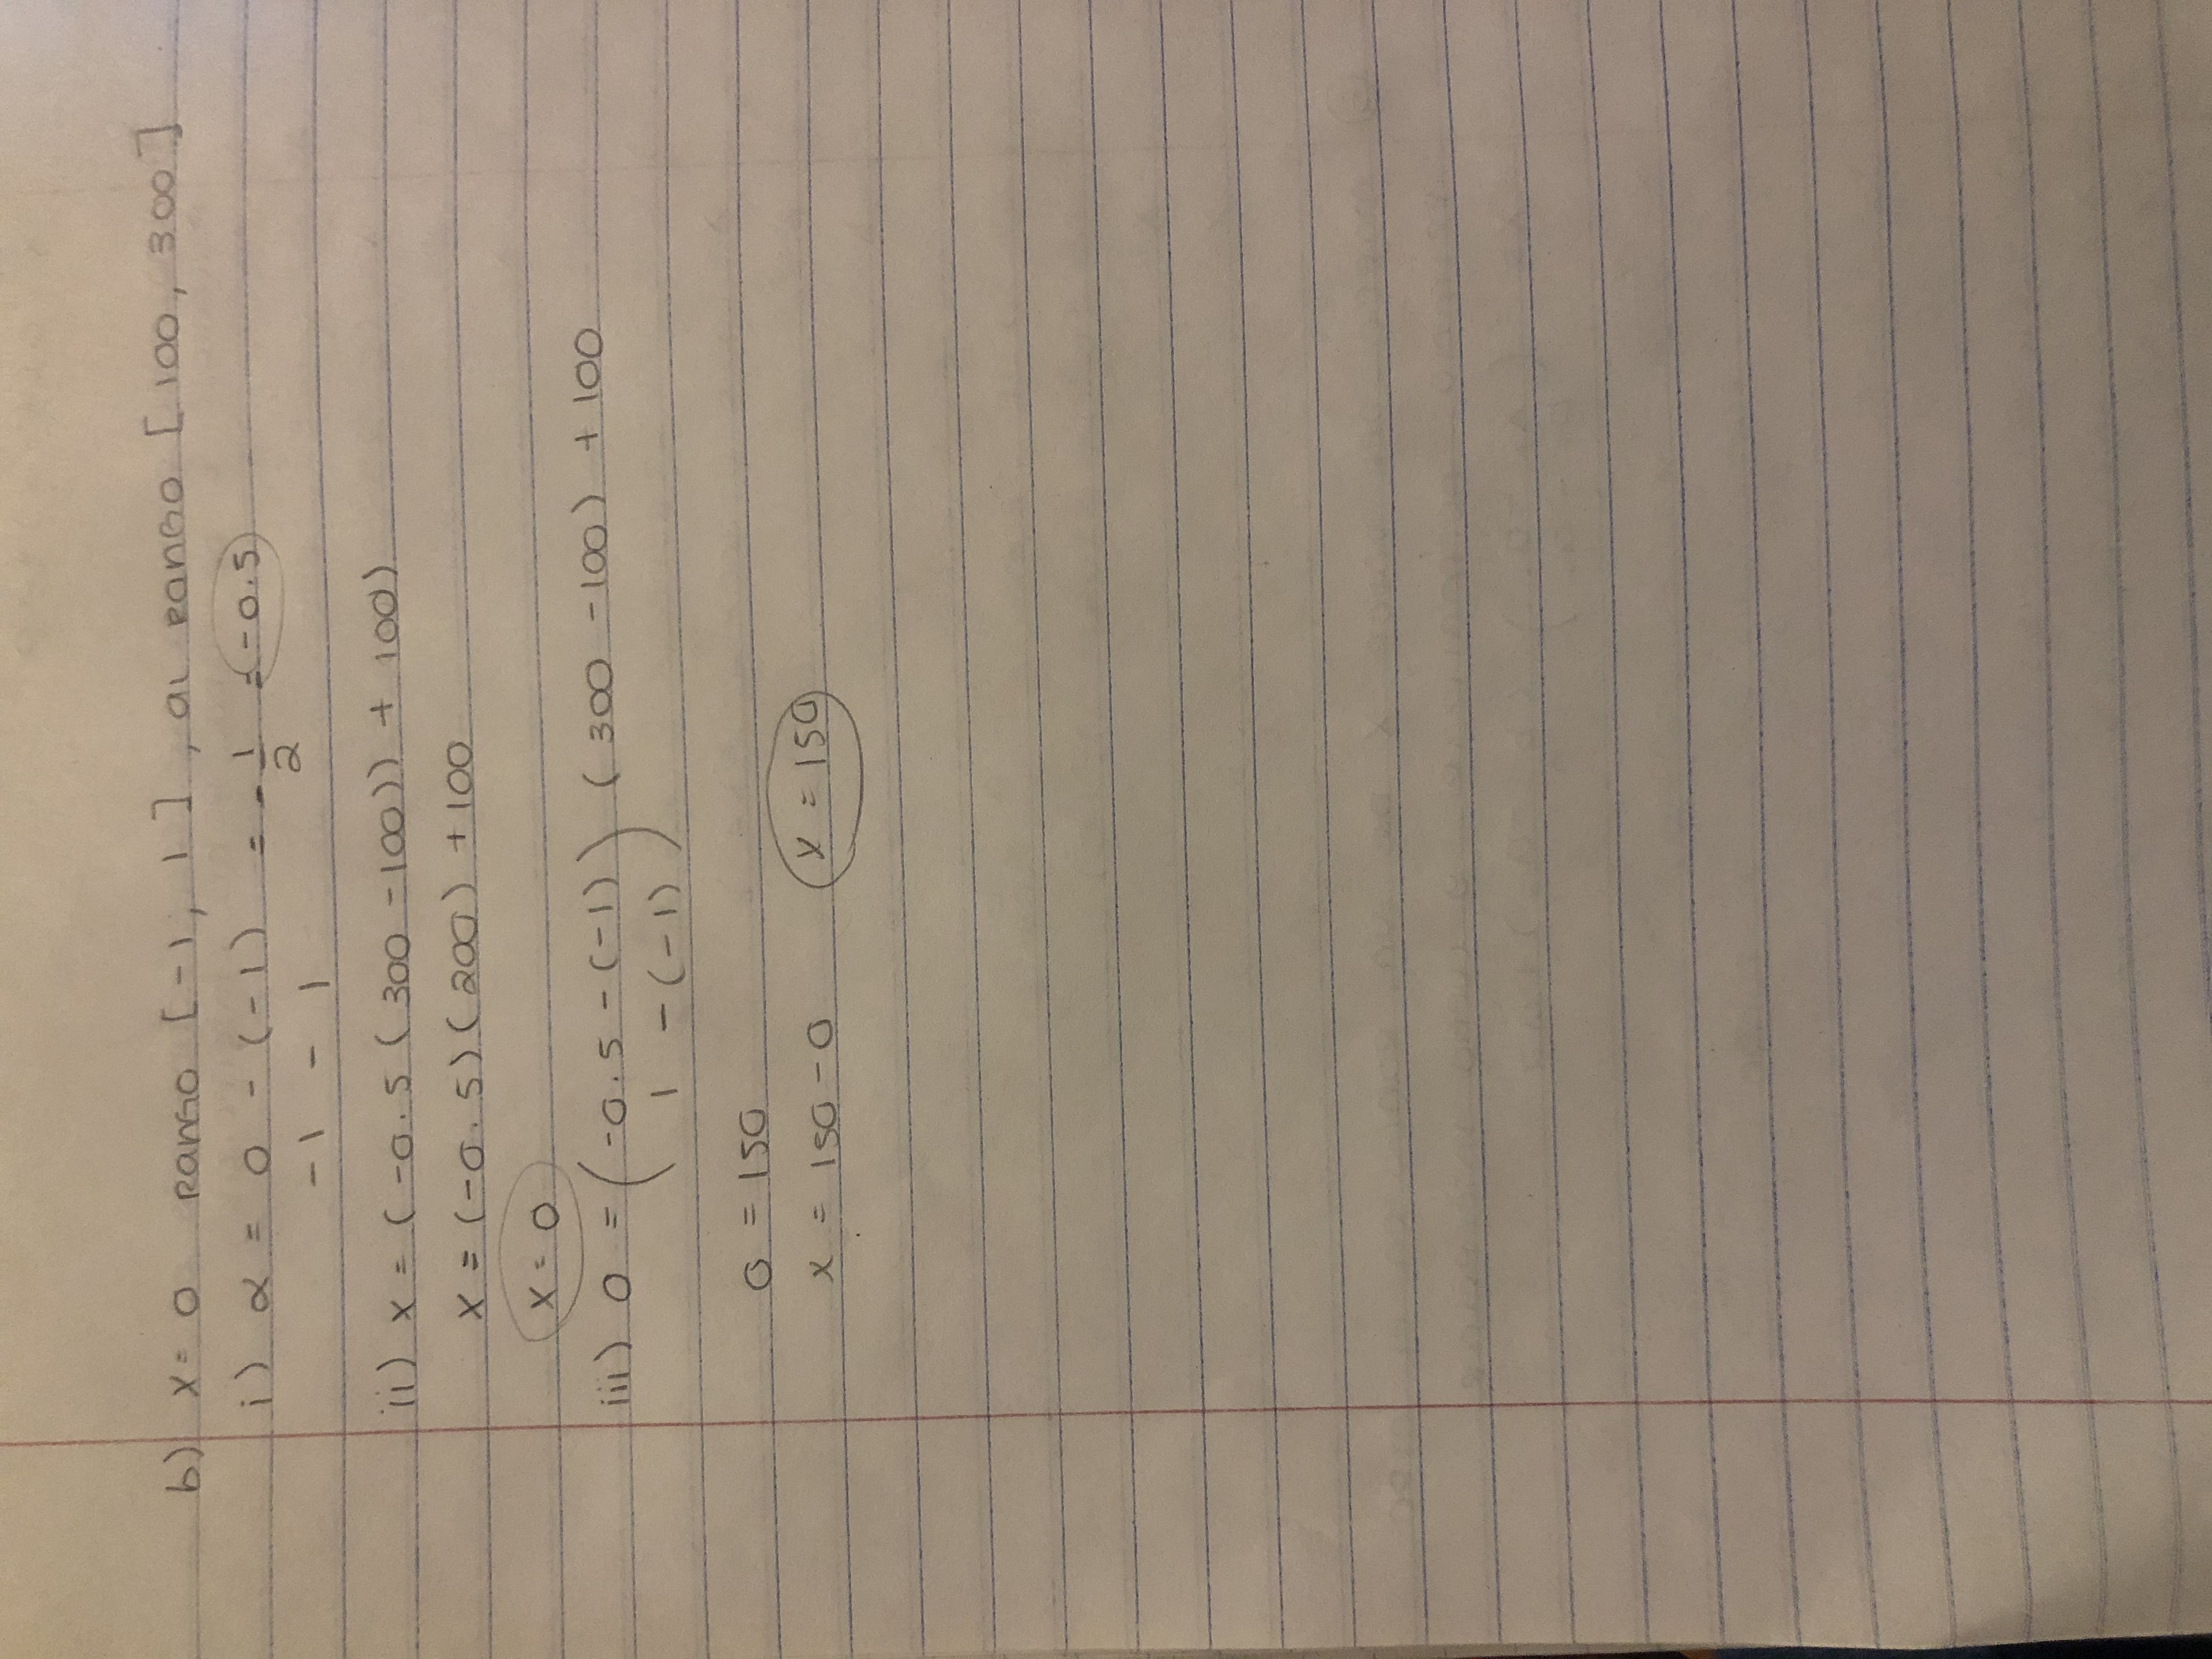 b) x = 0 Rango [-1, 1], al Rango [100, 300]
i) α = 0 - (-1) = - 1 = -0.5
-1 - 1 2
ii) x = (-0.5 (300 - 100)) + 100)
x = (-0.5)(200) + 100
x = 0
iii) 0 = (-0.5 - (-1)) (300 - 100) + 100
1 - (-1)
0 = 150
x = 150 - 0 x = 150